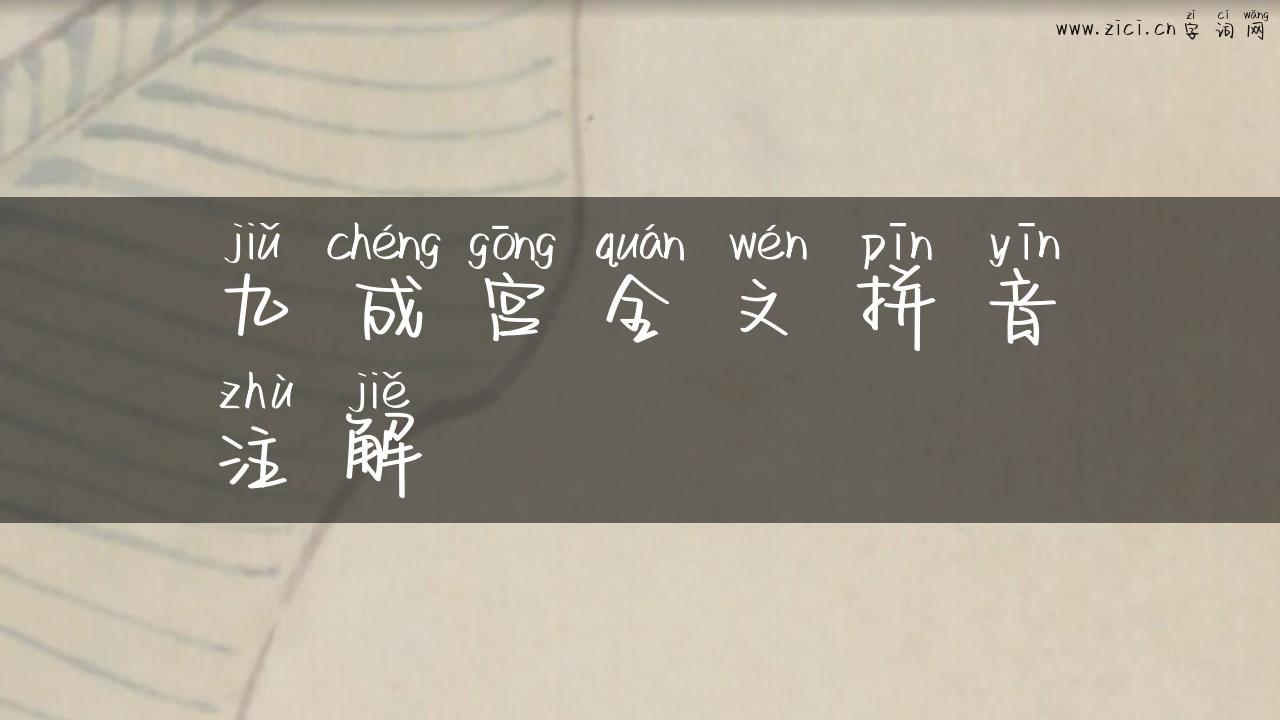 zì cí wǎng
www.zici.cn 字词网
jiǔ chéng gōng quán wén pīn yīn
九成宫全文拼音
zhù jiě
注解